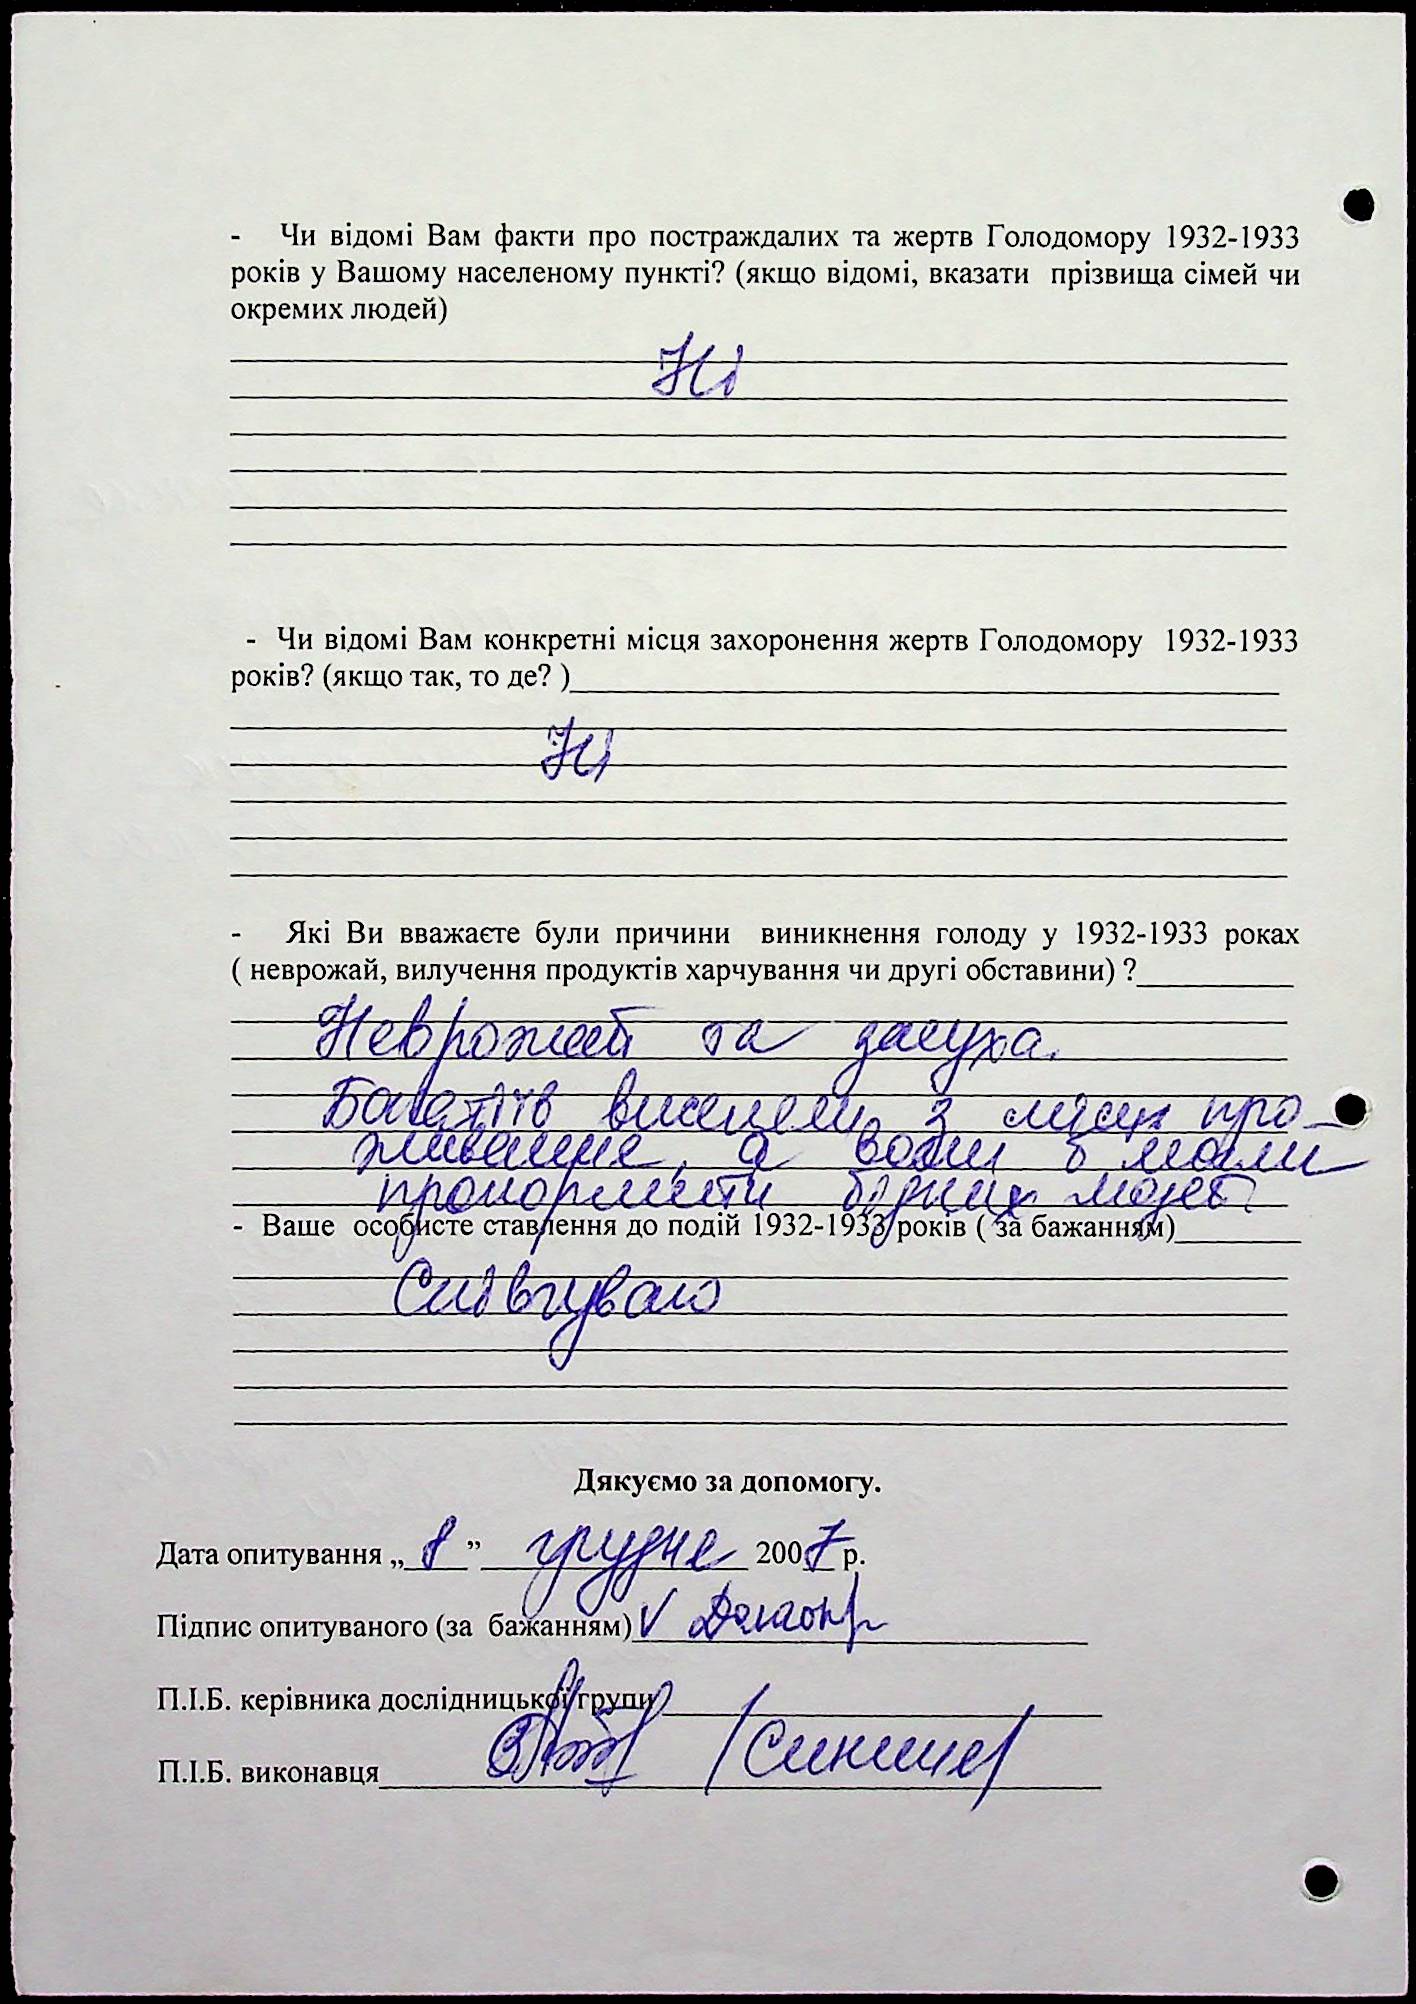 - Чи відомі Вам факти про постраждалих та жертв Голодомору 1932-1933
років у Вашому населеному пункті? (якщо відомі, вказати прізвища сімей чи
окремих людей)
Ні
- Чи відомі Вам конкретні місця захоронення жертв Голодомору 1932-1933
років? (якщо так, то де? )
Ні
- Які Ви вважаєте були причини виникнення голоду у 1932-1933 роках
( неврожай, вилучення продуктів харчування чи другі обставини) ?
Неврожай та засуха.
Багатіїв виселели з місць про-
живання, а вони б могли
прокормити бідних людей
- Ваше особисте ставлення до подій 1932-1933 років ( за бажанням)
Співчуваю
Дякуємо за допомогу.
Дата опитування „ 8 ” грудня 2007 р.
Підпис опитуваного (за бажанням) V
П.І.Б. керівника дослідницької групи
П.І.Б. виконавця